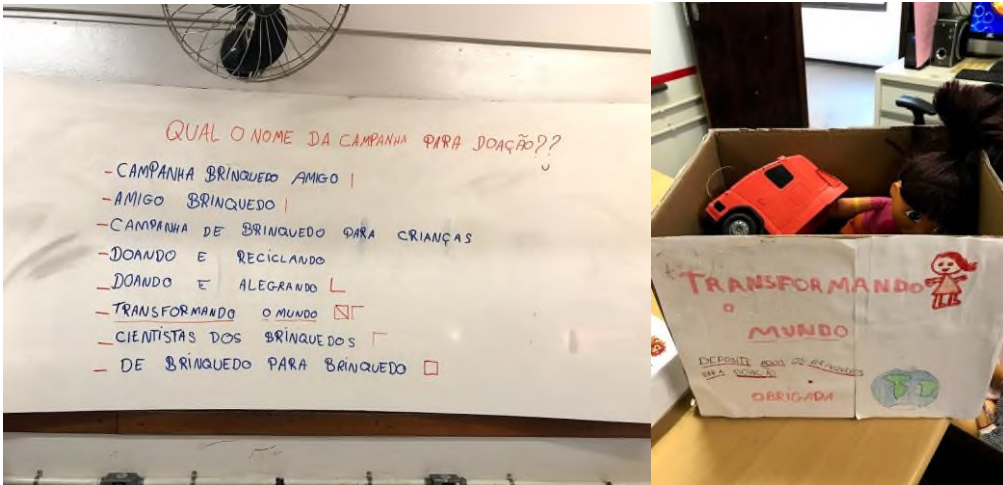 QUAL O NOME DA CAMPANHA PARA DOAÇÃO??
- CAMPANHA BRINQUEDO AMIGO
- AMIGO BRINQUEDO
- CAMPANHA DE BRINQUEDO PARA CRIANÇAS
- DOANDO E RECICLANDO
- DOANDO E ALEGRANDO
- TRANSFORMANDO O MUNDO
- CIENTISTAS DOS BRINQUEDOS
- DE BRINQUEDO PARA BRINQUEDO
TRANSFORMANDO
O
MUNDO
DEPOSITE AQUI OS BRINQUEDOS
PARA DOAÇÃO
OBRIGADA